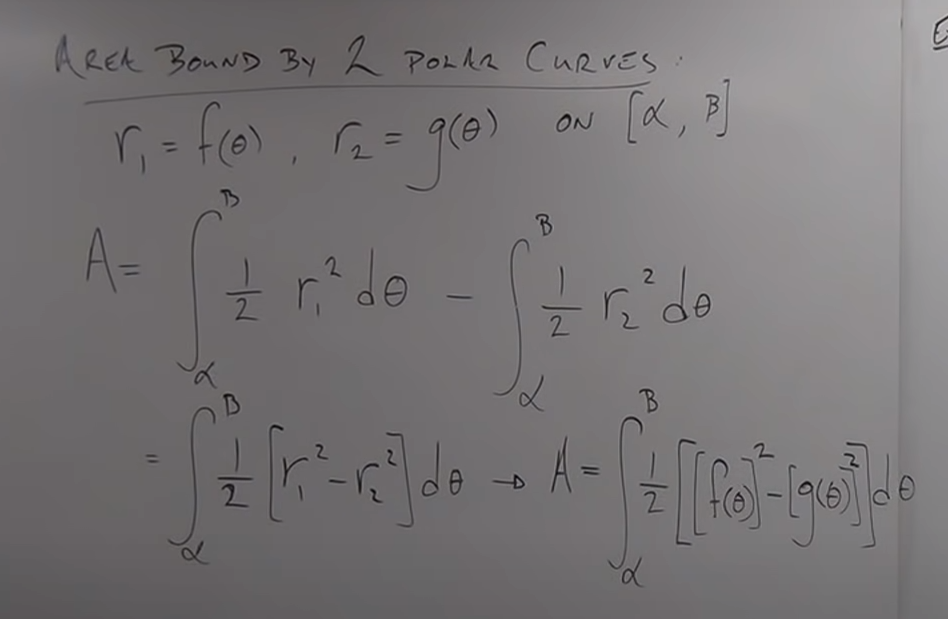 AREA BOUND BY 2 POLAR CURVES.
r₁ = f(θ), r₂ = g(θ) ON [α, β]
A = ∫_α^β 1/2 r₁² dθ − ∫_α^β 1/2 r₂² dθ
= ∫_α^β 1/2 [r₁² − r₂²] dθ → A = ∫_α^β 1/2 [[f(θ)]² − [g(θ)]²] dθ